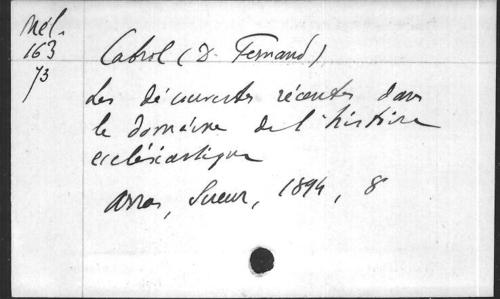 Mél.
163
73
Cabrol (D. Fernand)
Les découvertes récentes dans
le domaine de l'histoire
ecclésiastique
Arras, Sueur, 1894, 8